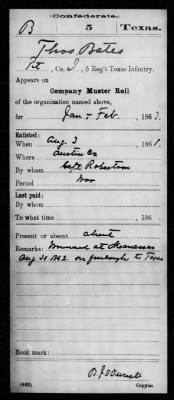 Confederate.
B 5 Texas.
Thos. Bates
Pvt, Co. I, 5 Reg't Texas Infantry.
Appears on
Company Muster Roll
of the organization named above,
for Jan & Feb, 1863.
Enlisted:
When Aug 3, 1861.
Where Austin Co
By whom Capt Robertson
Period War
Last paid:
By whom
To what time , 186
Present or absent absent
Remarks: Wounded at Manassas
Aug 30 1862 on furlough to Texas
Book mark:
(642) Copyist.